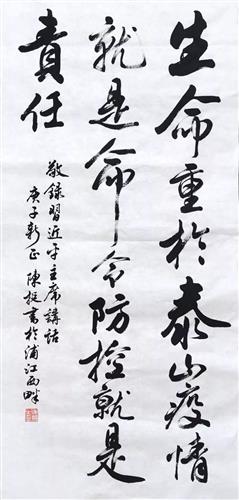 生命重於泰山疫情
就是命令防控就是
責任
敬錄習近平主席講話
庚子新正 陳挺書於浦江西畔